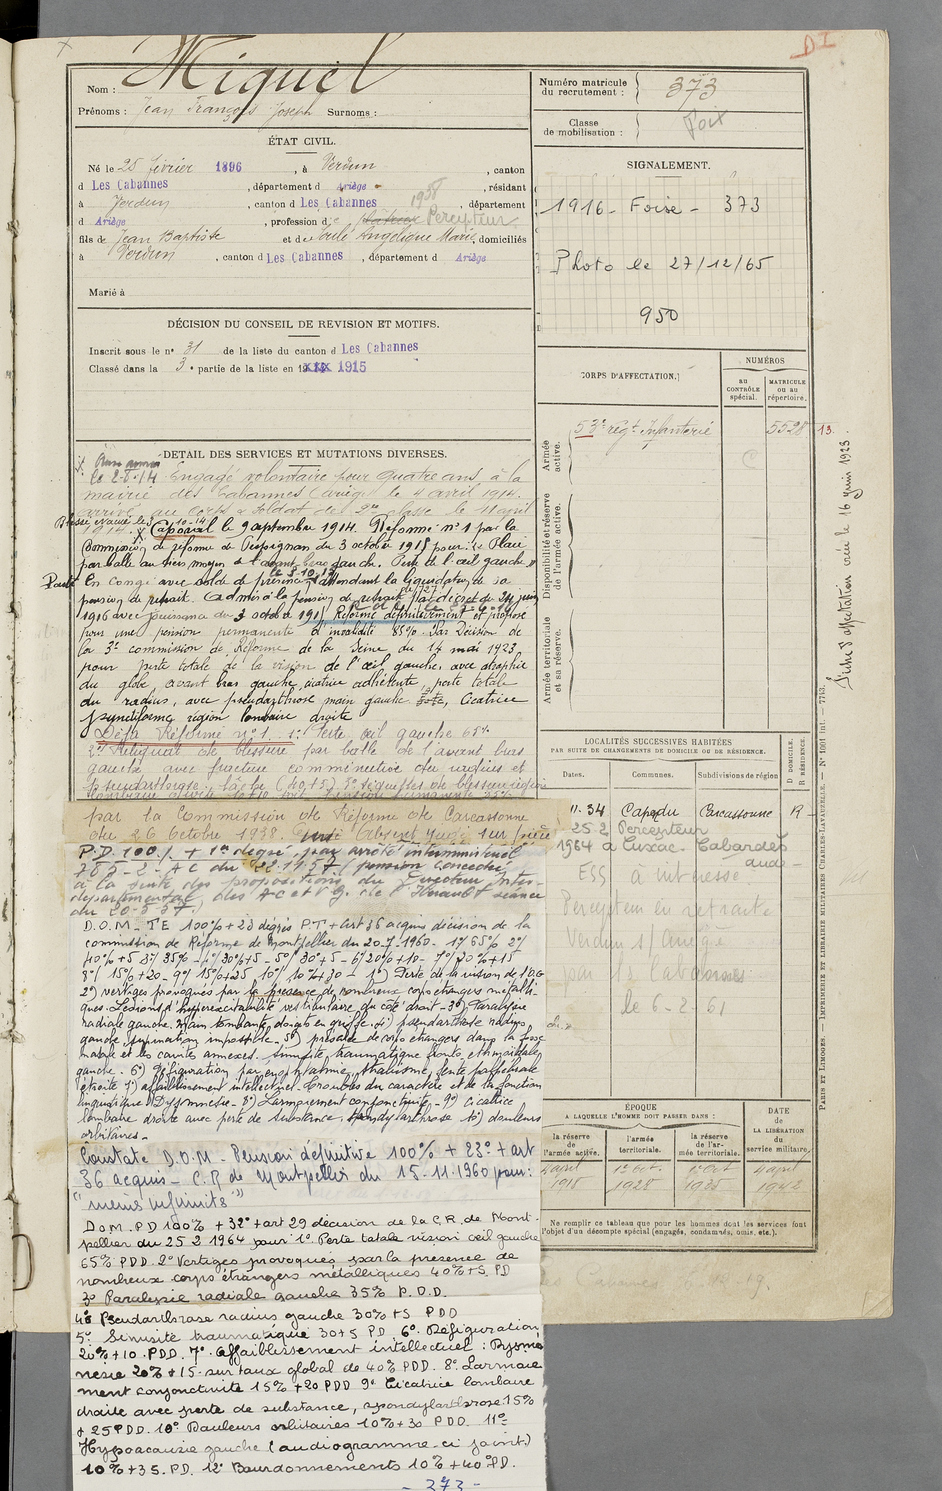 D I
Nom : Miquel
Prénoms : Jean François Joseph Surnoms :
Numéro matricule du recrutement : 373
Classe de mobilisation : Foix
ÉTAT CIVIL.
Né le 25 février 1896, à Verdun, canton
d Les Cabannes, département d Ariège, résidant
à Verdun, canton d Les Cabannes, département
1938
d Ariège, profession de Percepteur
fils de Jean Baptiste et de Angélique Marie, domiciliés
à Verdun, canton d Les Cabannes, département d Ariège
Marié à
SIGNALEMENT.
1916 - Foix - 373
Photo le 27/12/65
950
DÉCISION DU CONSEIL DE REVISION ET MOTIFS.
Inscrit sous le n° 31 de la liste du canton d Les Cabannes
Classé dans la 3e partie de la liste en 1915
CORPS D'AFFECTATION.
NUMÉROS
au CONTRÔLE spécial.
MATRICULE ou au répertoire.
Armée active.
53e régt Infanterie 5528 13.
Disponibilité et réserve de l'armée active.
Armée territoriale et sa réserve.
Fiche d'affectation créée le 16 juin 1923.
DÉTAIL DES SERVICES ET MUTATIONS DIVERSES.
le 2-8-14 Engagé volontaire pour quatre ans, à la
mairie des Cabannes (Ariège) le 4 avril 1914.
arrivé au corps & soldat de 2me classe le 11 avril
1914. Caporal le 9 septembre 1914. Réformé n° 1 par la
Commission de réforme de Perpignan du 3 octobre 1915 pour: 1° Plaie
par balle au tiers moyen de l'avant bras gauche. Perte de l'œil gauche
En congé avec solde de présence attendant la liquidation de sa
pension de retraite. Admis à la pension de retraite par décret du 24 juin
1916 avec jouissance du 3 octobre 1915 Réformé définitivement et proposé
pour une pension permanente d'invalidité 85%. Par Décision de
la 3e commission de Réforme de la Seine du 14 mai 1923
pour perte totale de la vision de l'œil gauche, avec atrophie
du globe, avant bras gauche, cicatrice adhérente, perte totale
du radius, avec pseudarthrose main gauche, Cicatrice
punctiforme région lombaire droite
Déjà Réformé n° 1. 1° Perte œil gauche 65%.
2° Reliquat de blessure par balle de l'avant bras
gauche avec fracture comminutive du radius et
pseudarthrose
par la Commission de Réforme de Carcassonne
du 26 Octobre 1938.
P.D. 100% + 1er degré, par arrêté interministériel
à la suite des propositions du Directeur Inter-
départemental des AC et VG. de l'Hérault séance
du 20-5-57.
D.O.M. TE 100% + 23 degrés P.T + Art 36 acquis décision de la
commission de Réforme de Montpellier du 20-7-1960- 1°/ 65% 2°/
40% +5 3°/ 35% - 4°/ 30% +5 - 5°/ 30% +5 - 6°/ 20% +10 - 7°/ 20% +15
8°/ 15% +20 - 9°/ 15% +25 10°/ 10% +30 - 1°) Perte de la vision de l'OG
2°) vertiges provoqués par la présence de nombreux corps étrangers métalli-
ques. Lésions d'hyperexcitabilité vestibulaire du côté droit - 3°) Paralysie
radiale gauche. main tombante, doigts en griffe. 4°) pseudarthrose radius
gauche, supination impossible. 5°) présence de corps étrangers dans la fosse
nasale et les cavités annexes. Sinusite traumatique fronto ethmoïdale
gauche. 6°) Défiguration par enophtalmie, fente palpébrale
étroite 7°) affaiblissement intellectuel. Troubles du caractère et de la fonction
linguistique. Dysmnésie - 8°) Larmoiement conjonctivite - 9°) cicatrice
lombaire droite avec perte de substance, spondylarthrose 10°) douleurs
orbitaires -
Constate D.O.M - Pension définitive 100% + 23° + art
36 acquis - C.R de Montpellier du 15-11-1960 pour:
"mêmes infirmités"
D.O.M. P.D 100% + 32° + art 29 décision de la C.R. de Mont-
pellier du 25 2 1964 pour 1° Perte totale vision œil gauche
65% PDD. 2° Vertiges provoqués par la présence de
nombreux corps étrangers métalliques 40% +5 PD
3° Paralysie radiale gauche 35% P.D.D.
4° Pseudarthrose radius gauche 30% +5 PDD
5° Sinusite traumatique 30+5 PD. 6° Défiguration
20% +10. PDD. 7° Affaiblissement intellectuel : Dysm-
nésie 20% +15 sur taux global de 40% PDD. 8° Larmoie
ment conjonctivite 15% +20 PDD 9° Cicatrice lombaire
droite avec perte de substance, spondylarthrose 15%
+ 25 PDD. 10° Douleurs orbitaires 10% +30 PDD. 11°
Hypoacousie gauche (audiogramme ci joint)
10% +35. PD. 12° Bourdonnements 10% +40 PD.
- 373 -
LOCALITÉS SUCCESSIVES HABITÉES
PAR SUITE DE CHANGEMENTS DE DOMICILE OU DE RÉSIDENCE.
Dates. Communes. Subdivisions de région D DOMICILE. R RÉSIDENCE.
11.34 Capendu Carcassonne R
25 2 Percepteur
1964 à Cuxac-Cabardès
Aude
ESS à intéressé
Percepteur en retraite
Verdun s/ Ariège
par les Cabannes
le 6-2-61
ÉPOQUE
A LAQUELLE L'HOMME DOIT PASSER DANS :
la réserve de l'armée active. l'armée territoriale. la réserve de l'armée territoriale.
DATE DE LA LIBÉRATION DU service militaire.
4 avril 1918 1er Oct. 1928 1er Oct 1935 4 avril 1942
Ne remplir ce tableau que pour les hommes dont les services font l'objet d'un décompte spécial (engagés, condamnés, omis, etc.).
PARIS ET LIMOGES. — IMPRIMERIE ET LIBRAIRIE MILITAIRES CHARLES-LAVAUZELLE. — N° 1001 int. — 7713.